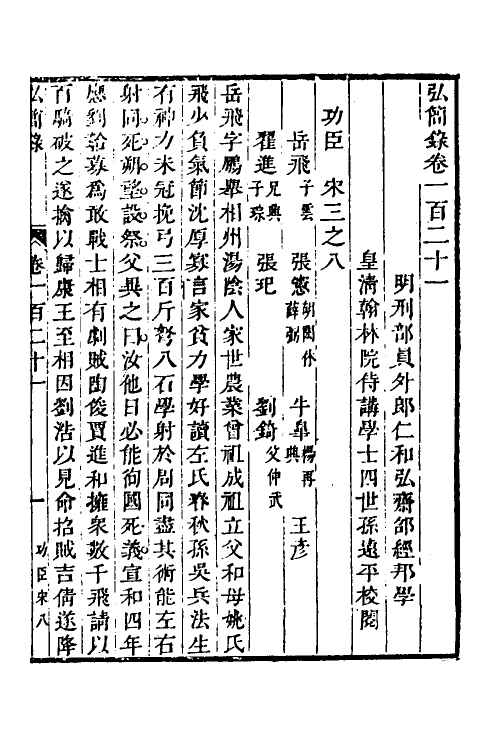 弘簡錄卷一百二十一
明刑部員外郎仁和弘齋邵經邦學
皇清翰林院侍講學士四世孫遠平校閱
功臣 宋三之八
岳飛子雲 張憲胡閎休 薛弼 牛皋楊再興 王彥
翟進兄興 子琮 張玘 劉錡父仲武
岳飛字鵬舉相州湯陰人家世農業曾祖成祖立父和母姚氏
飛少負氣節沈厚寡言家貧力學好讀左氏春秋孫吳兵法生
有神力未冠挽弓三百斤弩八石學射於周同盡其術能左右
射同死朔望設祭父異之曰汝他日必能徇國死義宣和四年
應劉韐募爲敢戰士相有劇賊陶俊賈進和擁衆數千飛請以
百騎破之遂擒以歸康王至相因劉浩以見命招賊吉倩遂降
弘簡錄 卷一百二十一 一 功臣宋八